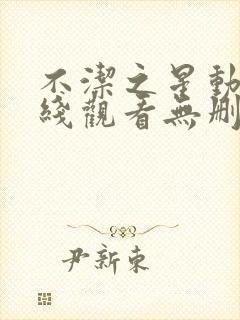 不潔之星動
綫觀看無刪
尹新東